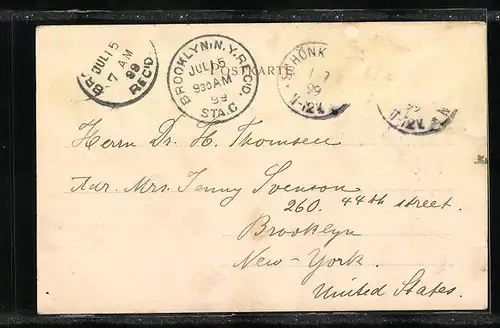 BR
JUL 15
7 AM
99
REC'D.
BROOKLYN, N.Y. REC'D.
JUL 15
9 30 AM
99
STA. C
POSTKARTE
SCHÖNK
7
99
11-12V.
99
11-12V. N
Herrn Dr. H. Thomsen
Adr. Mrs. Jenny Svenson
260. 44th street.
Brooklyn
New-York.
United States.